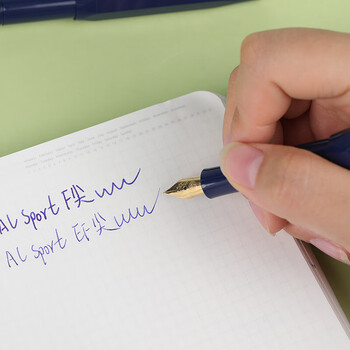 AL Sport F尖
AL Sport EF尖